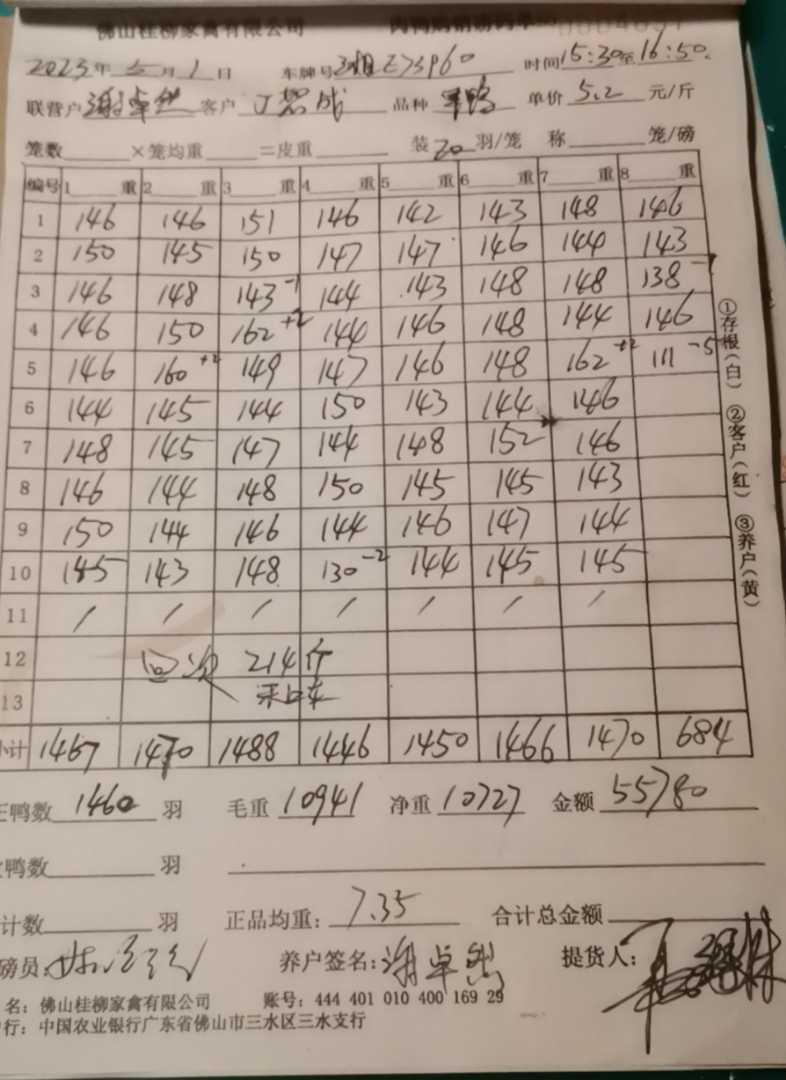 佛山桂柳家禽有限公司
2023年 5月 1日 车牌号 Z73P60 时间15:30至16:50.
联营户 谢卓然 客户 品种 单价 5.2 元/斤
笼数 ×笼均重 =皮重 装 20 羽/笼 称 笼/磅
编号 1 重 2 重 3 重 4 重 5 重 6 重 7 重 8 重
1 146 146 151 146 142 143 148 146
2 150 145 150 147 147 146 144 143
3 146 148 143-1 144 143 148 148 138-1
4 146 150 162+2 144 146 148 144 146
5 146 160+2 149 147 146 148 162+2 111-5
6 144 145 144 150 143 144 146
7 148 145 147 144 148 152 146
8 146 144 148 150 145 145 143
9 150 144 146 144 146 147 144
10 145 143 148 130-2 144 145 145
11 / / / / / / /
12 214斤
13
小计 1467 1470 1488 1446 1450 1466 1470 684
正鸭数 1460 羽 毛重 10941 净重 10727 金额 55780
鸭数 羽
计数 羽 正品均重: 7.35 合计总金额
磅员: 养户签名: 谢卓然 提货人:
名: 佛山桂柳家禽有限公司 账号: 444 401 010 400 169 29
行: 中国农业银行广东省佛山市三水区三水支行
①存根(白) ②客户(红) ③养户(黄)